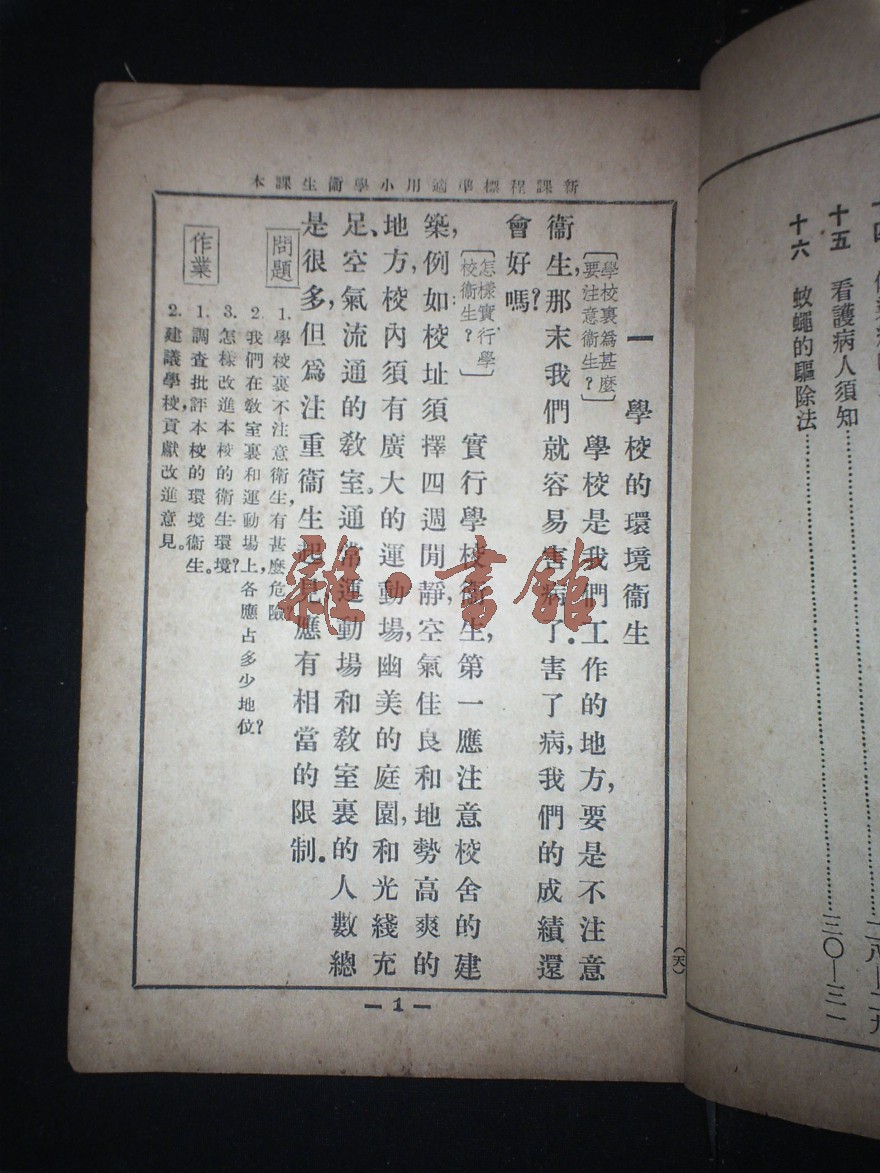 新課程標準適用小學衞生課本
一　學校的環境衞生
〔學校裏爲甚麽
要注意衞生？〕
學校是我們工作的地方,要是不注意
衞生,那末我們就容易害病了.害了病,我們的成績還
會好嗎？
〔怎樣實行學
校衞生？〕
實行學校衞生,第一應注意校舍的建
築,例如校址須擇四週閒靜,空氣佳良和地勢高爽的
地方,校內須有廣大的運動場,幽美的庭園,和光綫充
足、空氣流通的教室。通常運動場和教室裏的人數總
是很多,但爲注重衞生起見,應有相當的限制.
問題
1. 學校裏不注意衞生,有甚麽危險?
2. 我們在教室裏和運動場上,各應占多少地位?
3. 怎樣改進本校的衞生環境?
作業
1. 調查批評本校的環境衞生。
2. 建議學校,貢獻改進意見。
(天)
— 1 —
十五　看護病人須知
十六　蚊蠅的驅除法……三〇—三一
二八—二九
雜·書館